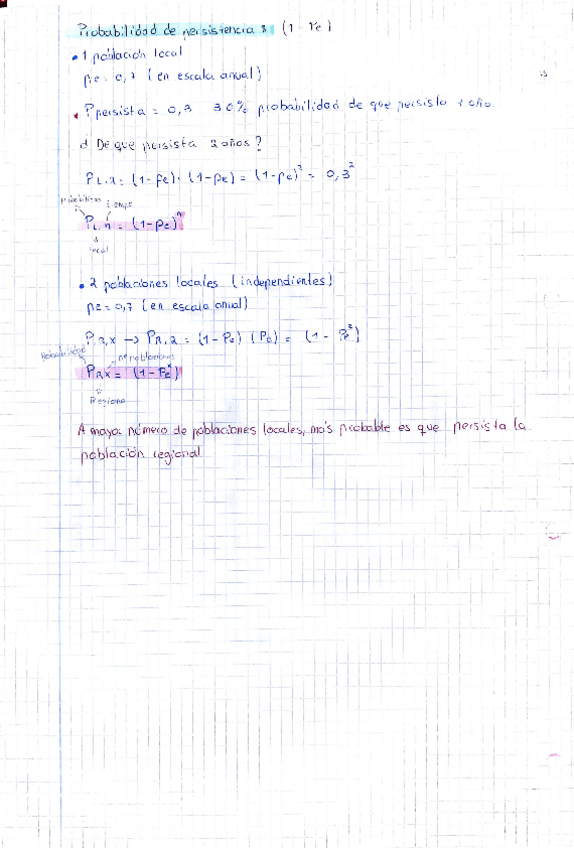 Probabilidad de persistencia : (1 - Pe)
• 1 población local
pe = 0,7 (en escala anual)
• Ppersista = 0,3 30% probabilidad de que persista 1 año
¿ De que persista 2 años?
PL,2 : (1-pe) · (1-pe) = (1-pe)² = 0,3²
Probabilidad tiempo
PL,n = (1-pe)ⁿ
local
• 2 poblaciones locales (independientes)
pe = 0,7 (en escala anual)
PR,x → PR,2 = (1-Pe) (Pe) = (1 - Pe²)
Probabilidad nº poblaciones
PR,x = (1-Pe^x)
Regional
A mayor número de poblaciones locales, más probable es que persista la
población regional